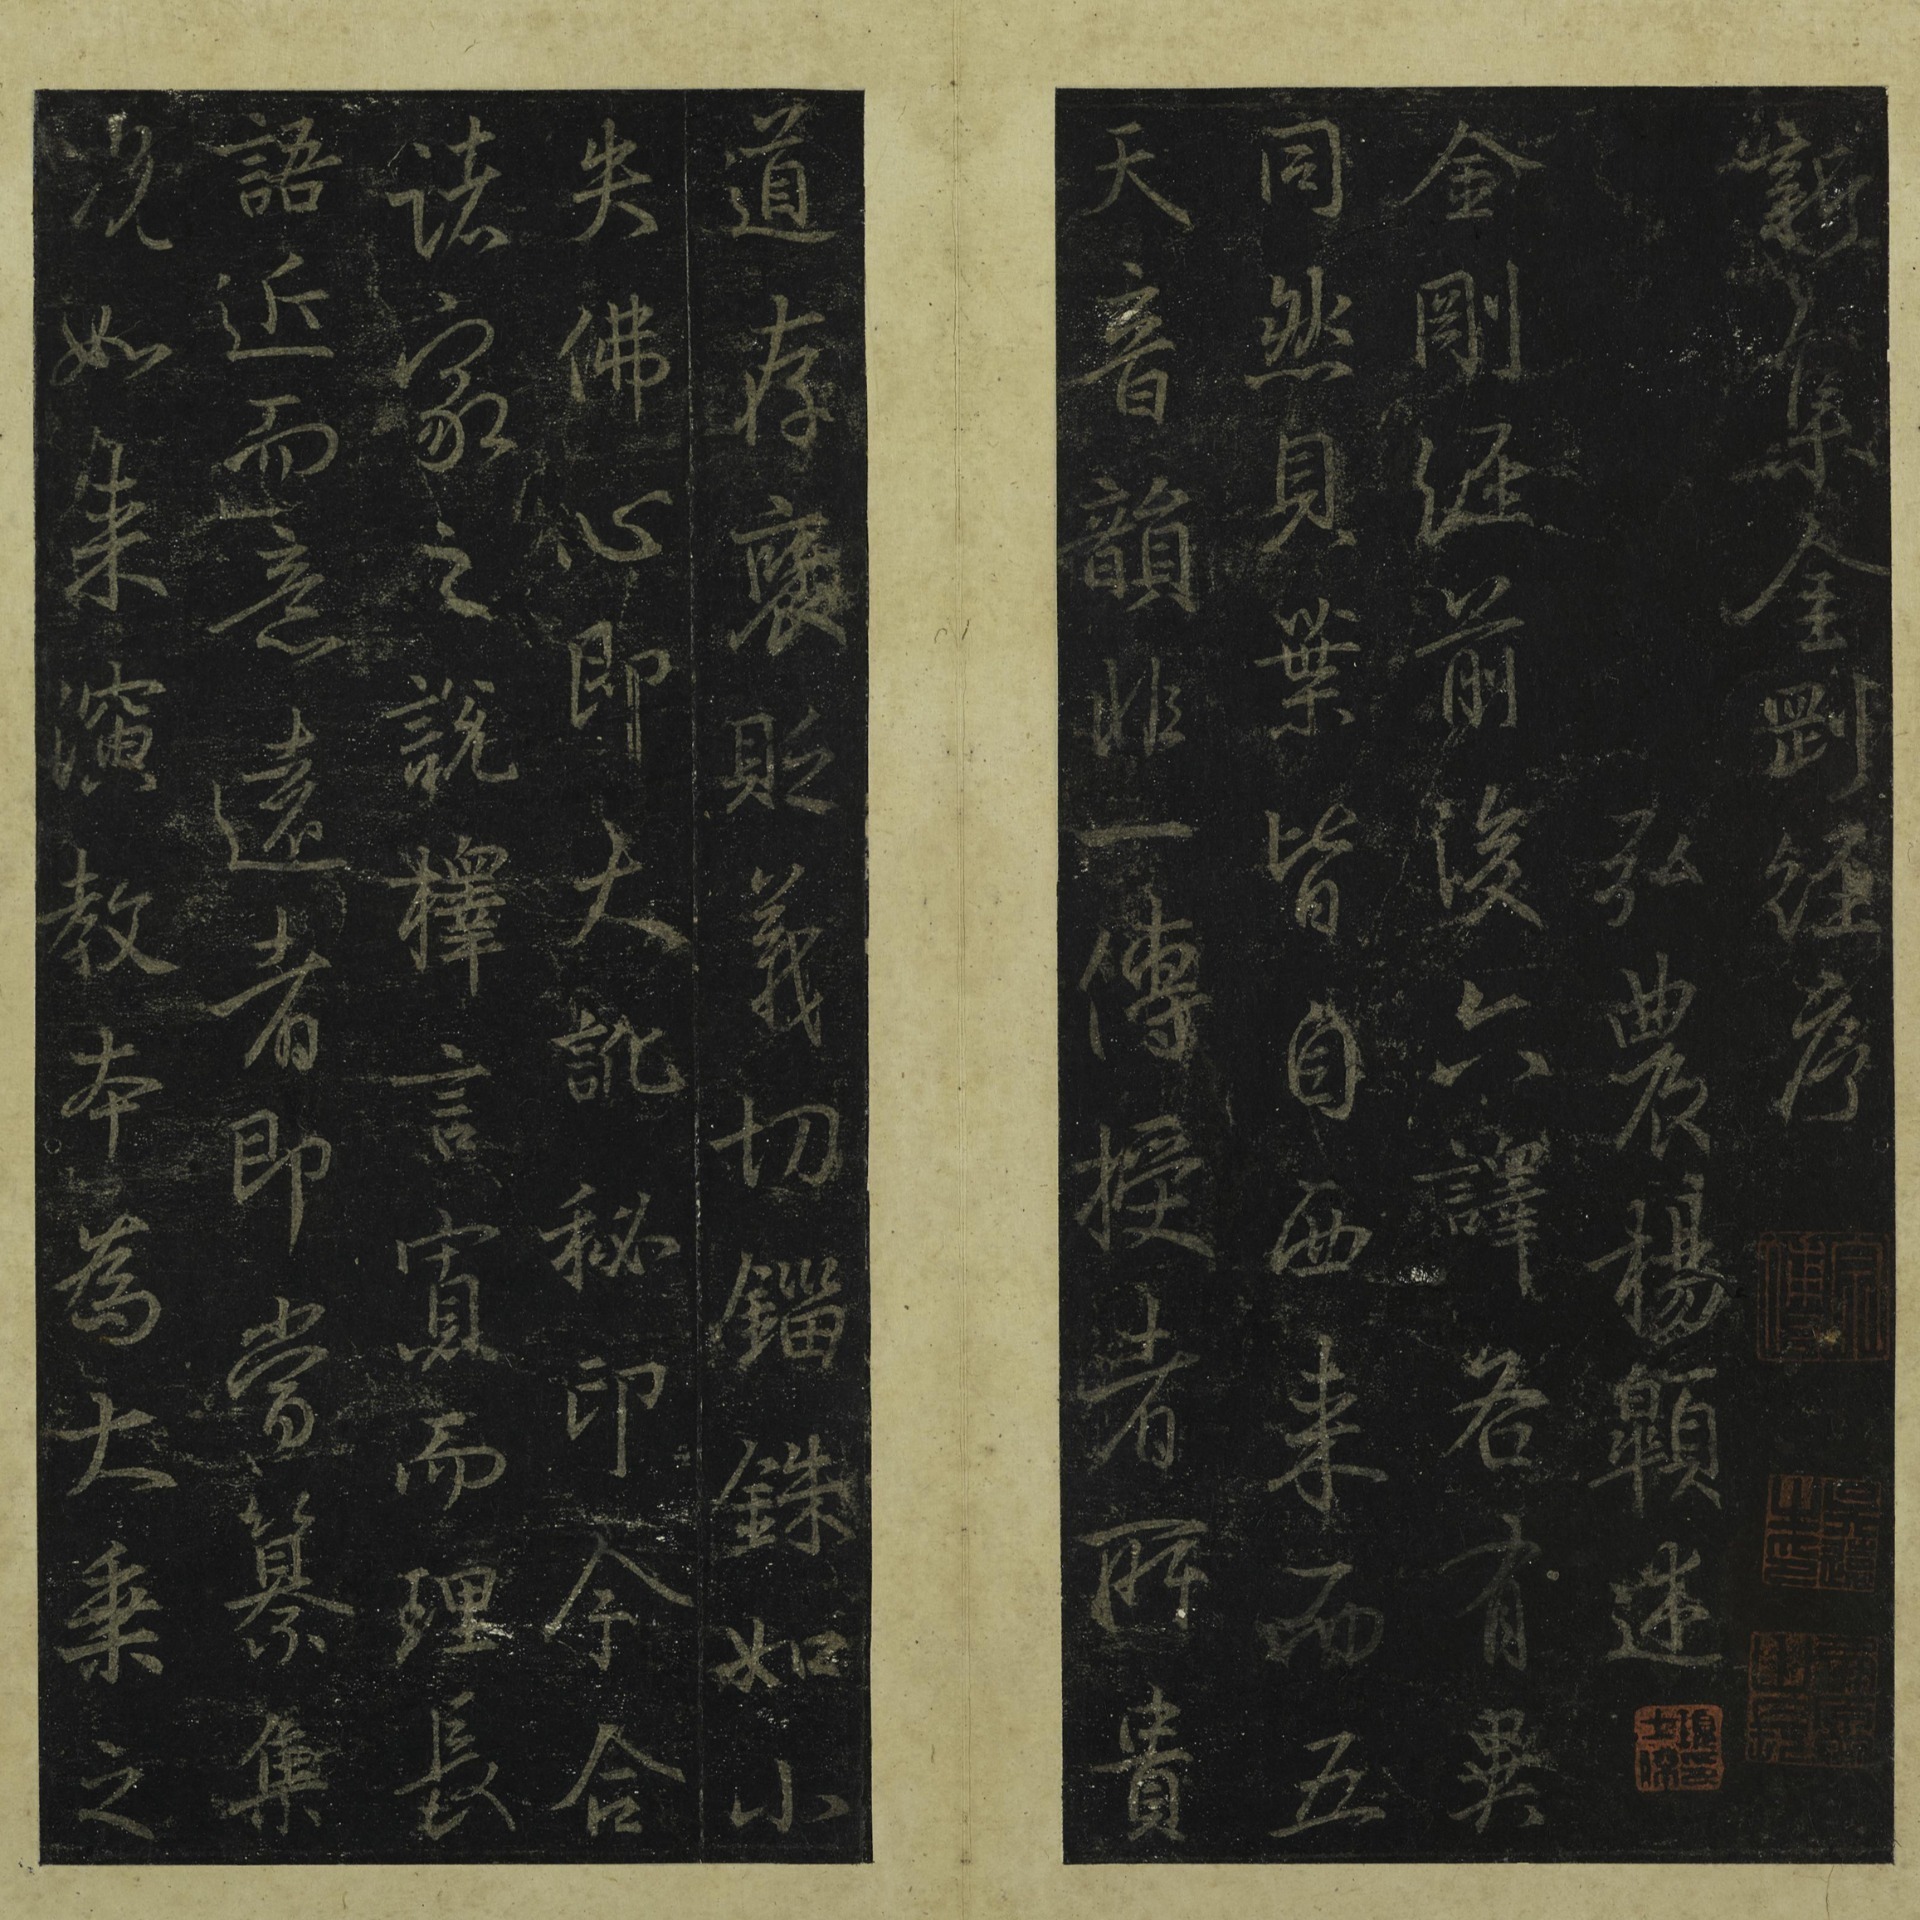 新集金剛經序
弘農楊述
金剛經前後六譯各有異
同然貝葉皆自西来而五
天音韻非一傳授者所貴
道存褒貶義切錙銖如小
失佛心即大訛秘印今合
諸家之說釋言寡而理長
語近而意遠者即當纂集
况如来演教本為大乗之